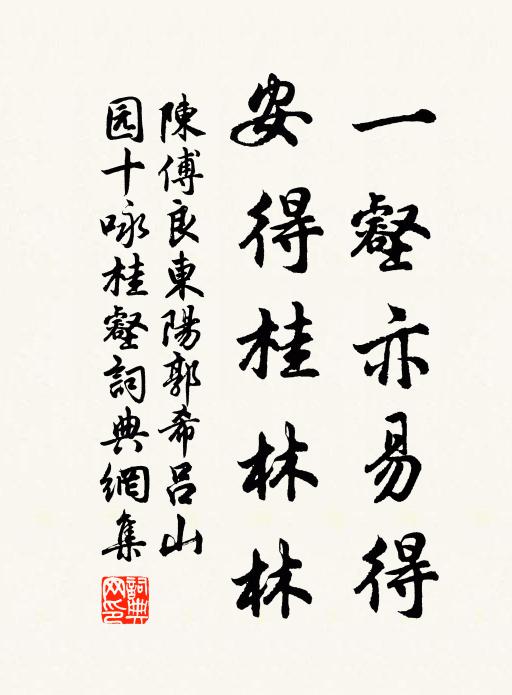 一壑亦易得
安得桂林林
陳傅良東陽郭希呂山
园十咏桂壑詞典網集
詞典网印